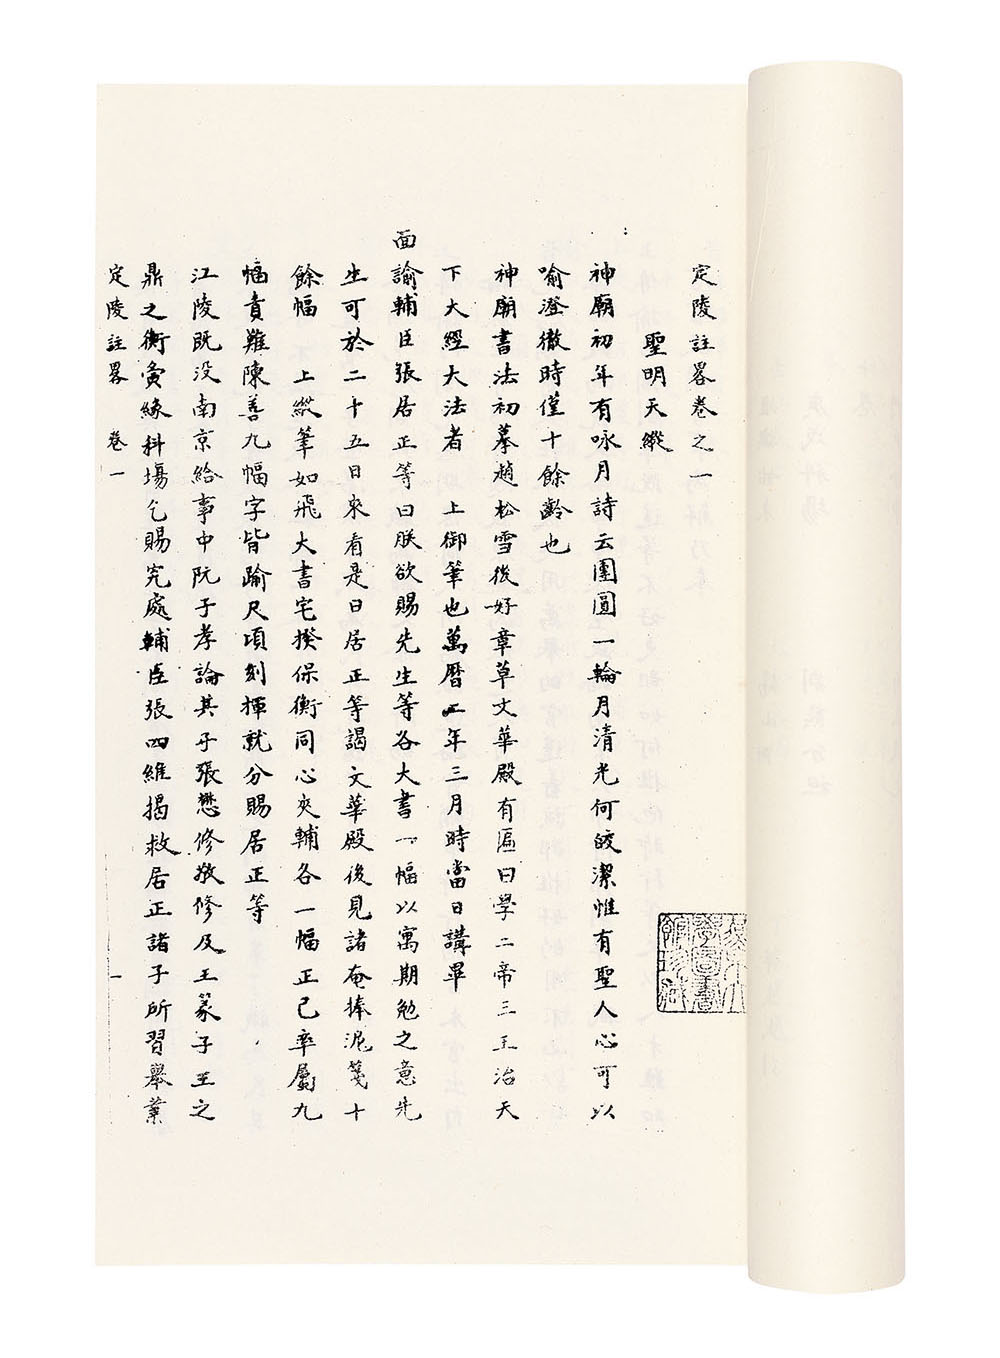 定陵註畧卷之一
聖明天縱
神廟初年有咏月詩云團圓一輪月清光何皎潔惟有聖人心可以
喻澄徹時僅十餘齡也
神廟書法初摹趙松雪後好章草文華殿有匾曰學二帝三王治天
下大經大法者 上御筆也萬曆二年三月時當日講畢
面諭輔臣張居正等曰朕欲賜先生等各大書一幅以寓期勉之意先
生可於二十五日來看是日居正等謁文華殿後見諸奄捧泥箋十
餘幅 上縱筆如飛大書宅揆保衡同心夾輔各一幅正己率屬九
幅責難陳善九幅字皆踰尺項刻揮就分賜居正等
江陵既没南京給事中阮子孝論其子張懋修敬修及王篆子王之
鼎之衡夤緣科塲乞賜究處輔臣張四維揭救居正諸子所習舉業
定陵註畧 卷一 一